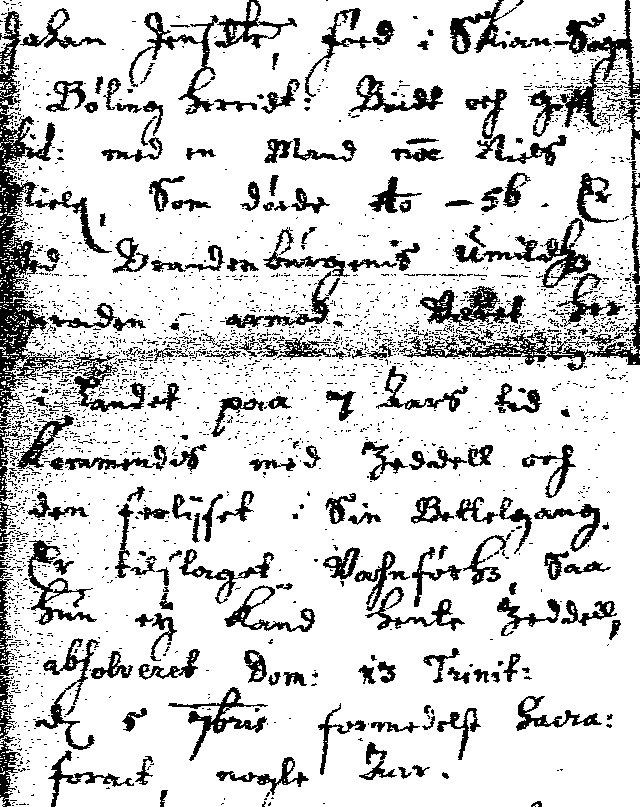 Johan Jensdtr, föed i Skian-Sogn
Bôling herridt: Boedt och gifft
vid: med en Mand noe Niels
Niels, Som döede Ao -56. Er
ved Brandenbúrgernis úmildhz
geraaden i armod. Veret her
i Landet paa 7 Aars tid.
Kommendis med Zeddell och
den forlijset i Sin Bettelgang.
Er tilslaget Vahnförhz, Saa
hún eij kand hente Zeddell,
absolveret Dom: 13 Trinit:
d. 5 7bris formedelst Sacra:
foract, nogle Aar.